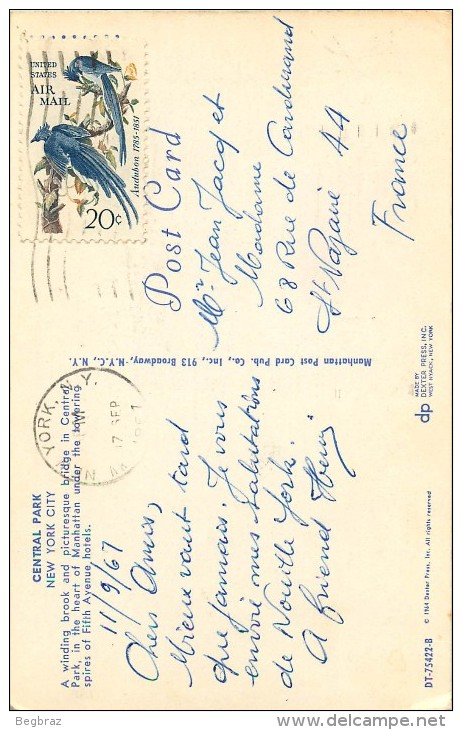 CENTRAL PARK
NEW YORK CITY
A winding brook and picturesque bridge in Central
Park, in the heart of Manhattan under the towering
spires of Fifth Avenue hotels.
11/9/67
Chers Amis,
Mieux vaut tard
que jamais. Je vous
envoie mes salutations
de Nouille York.
A friend Henri
DT-75422-B
© 1964 Dexter Press, Inc. All rights reserved
Manhattan Post Card Pub. Co., Inc., 913 Broadway, N.Y.C., N.Y.
dp
MADE BY
DEXTER PRESS, INC.
WEST NYACK, NEW YORK
YORK, N.Y.
17 SEP
Post Card
UNITED
STATES
AIR
MAIL
Audubon 1785-1851
20c
Mr Jean Jacq et
Madame
68 Rue de Cardurand
St Nazaire 44
France
Begbraz
delcampe.net